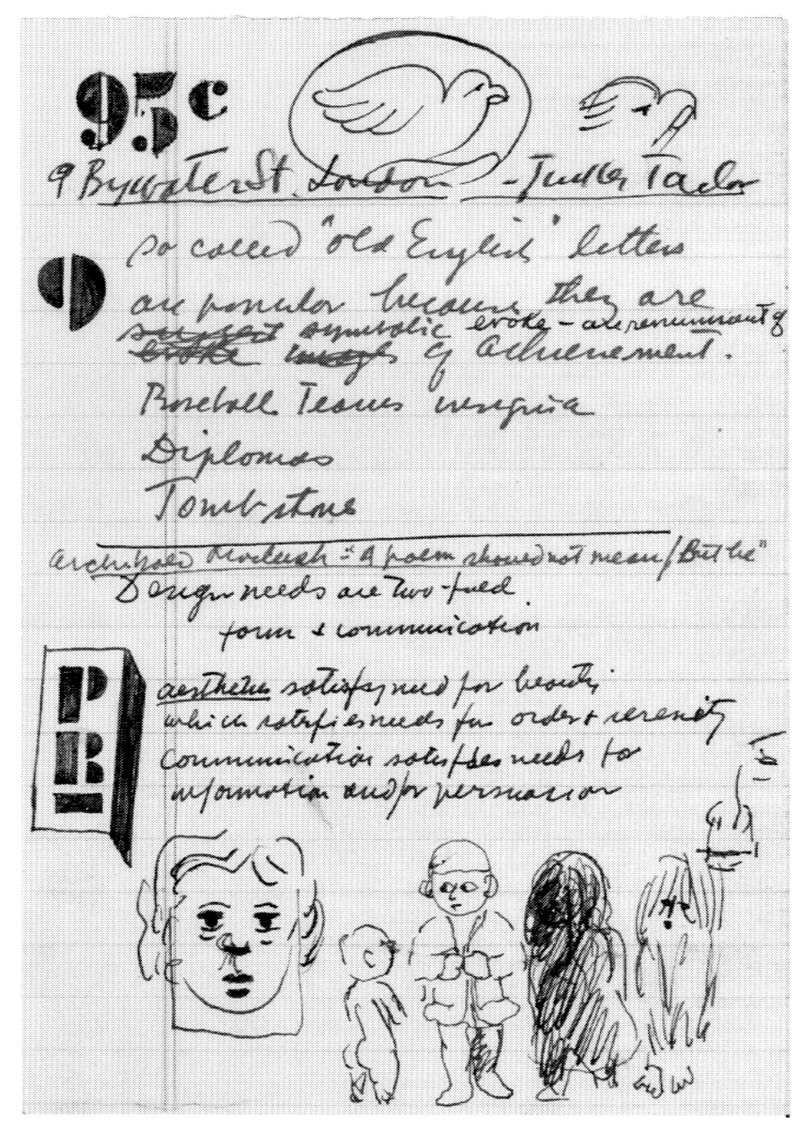 95¢
9 Bywater St. London - Tucker Taylor
so called "old English" letters
9
are popular because they are
suggest symbolic evoke - are reminiscent of
evoke images of achievement.
Baseball Teams insignia
Diplomas
Tombstone
Archibald Macleish - "A poem should not mean / But be"
Design needs are two-fold
form & communication
PRI
aesthetics satisfy need for beauty
which satisfies needs for order & serenity
communication satisfies needs for
information and/or persuasion